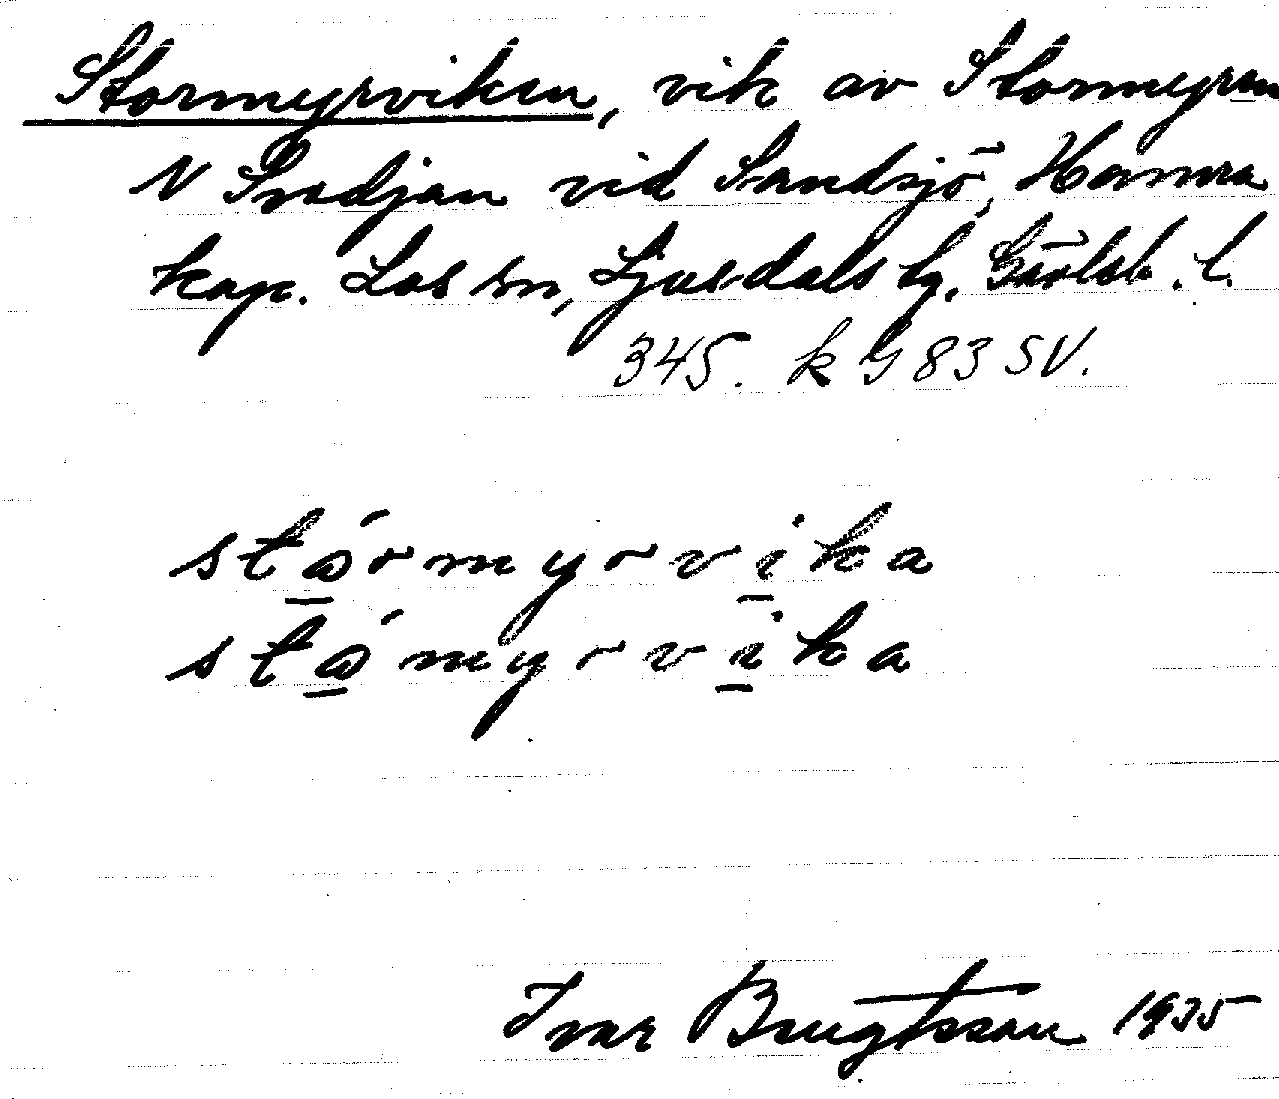 Stormyrviken, vik av Stormyran
N Svadjan vid Sandsjö, Hamra
kap. Los sn, Ljusdals tg. Gävleb. l.
345. k G 83 SV.
stώ̲rmyrvi̲ka
stώ̲myrvi̲ka
Ivar Bengtsson 1935